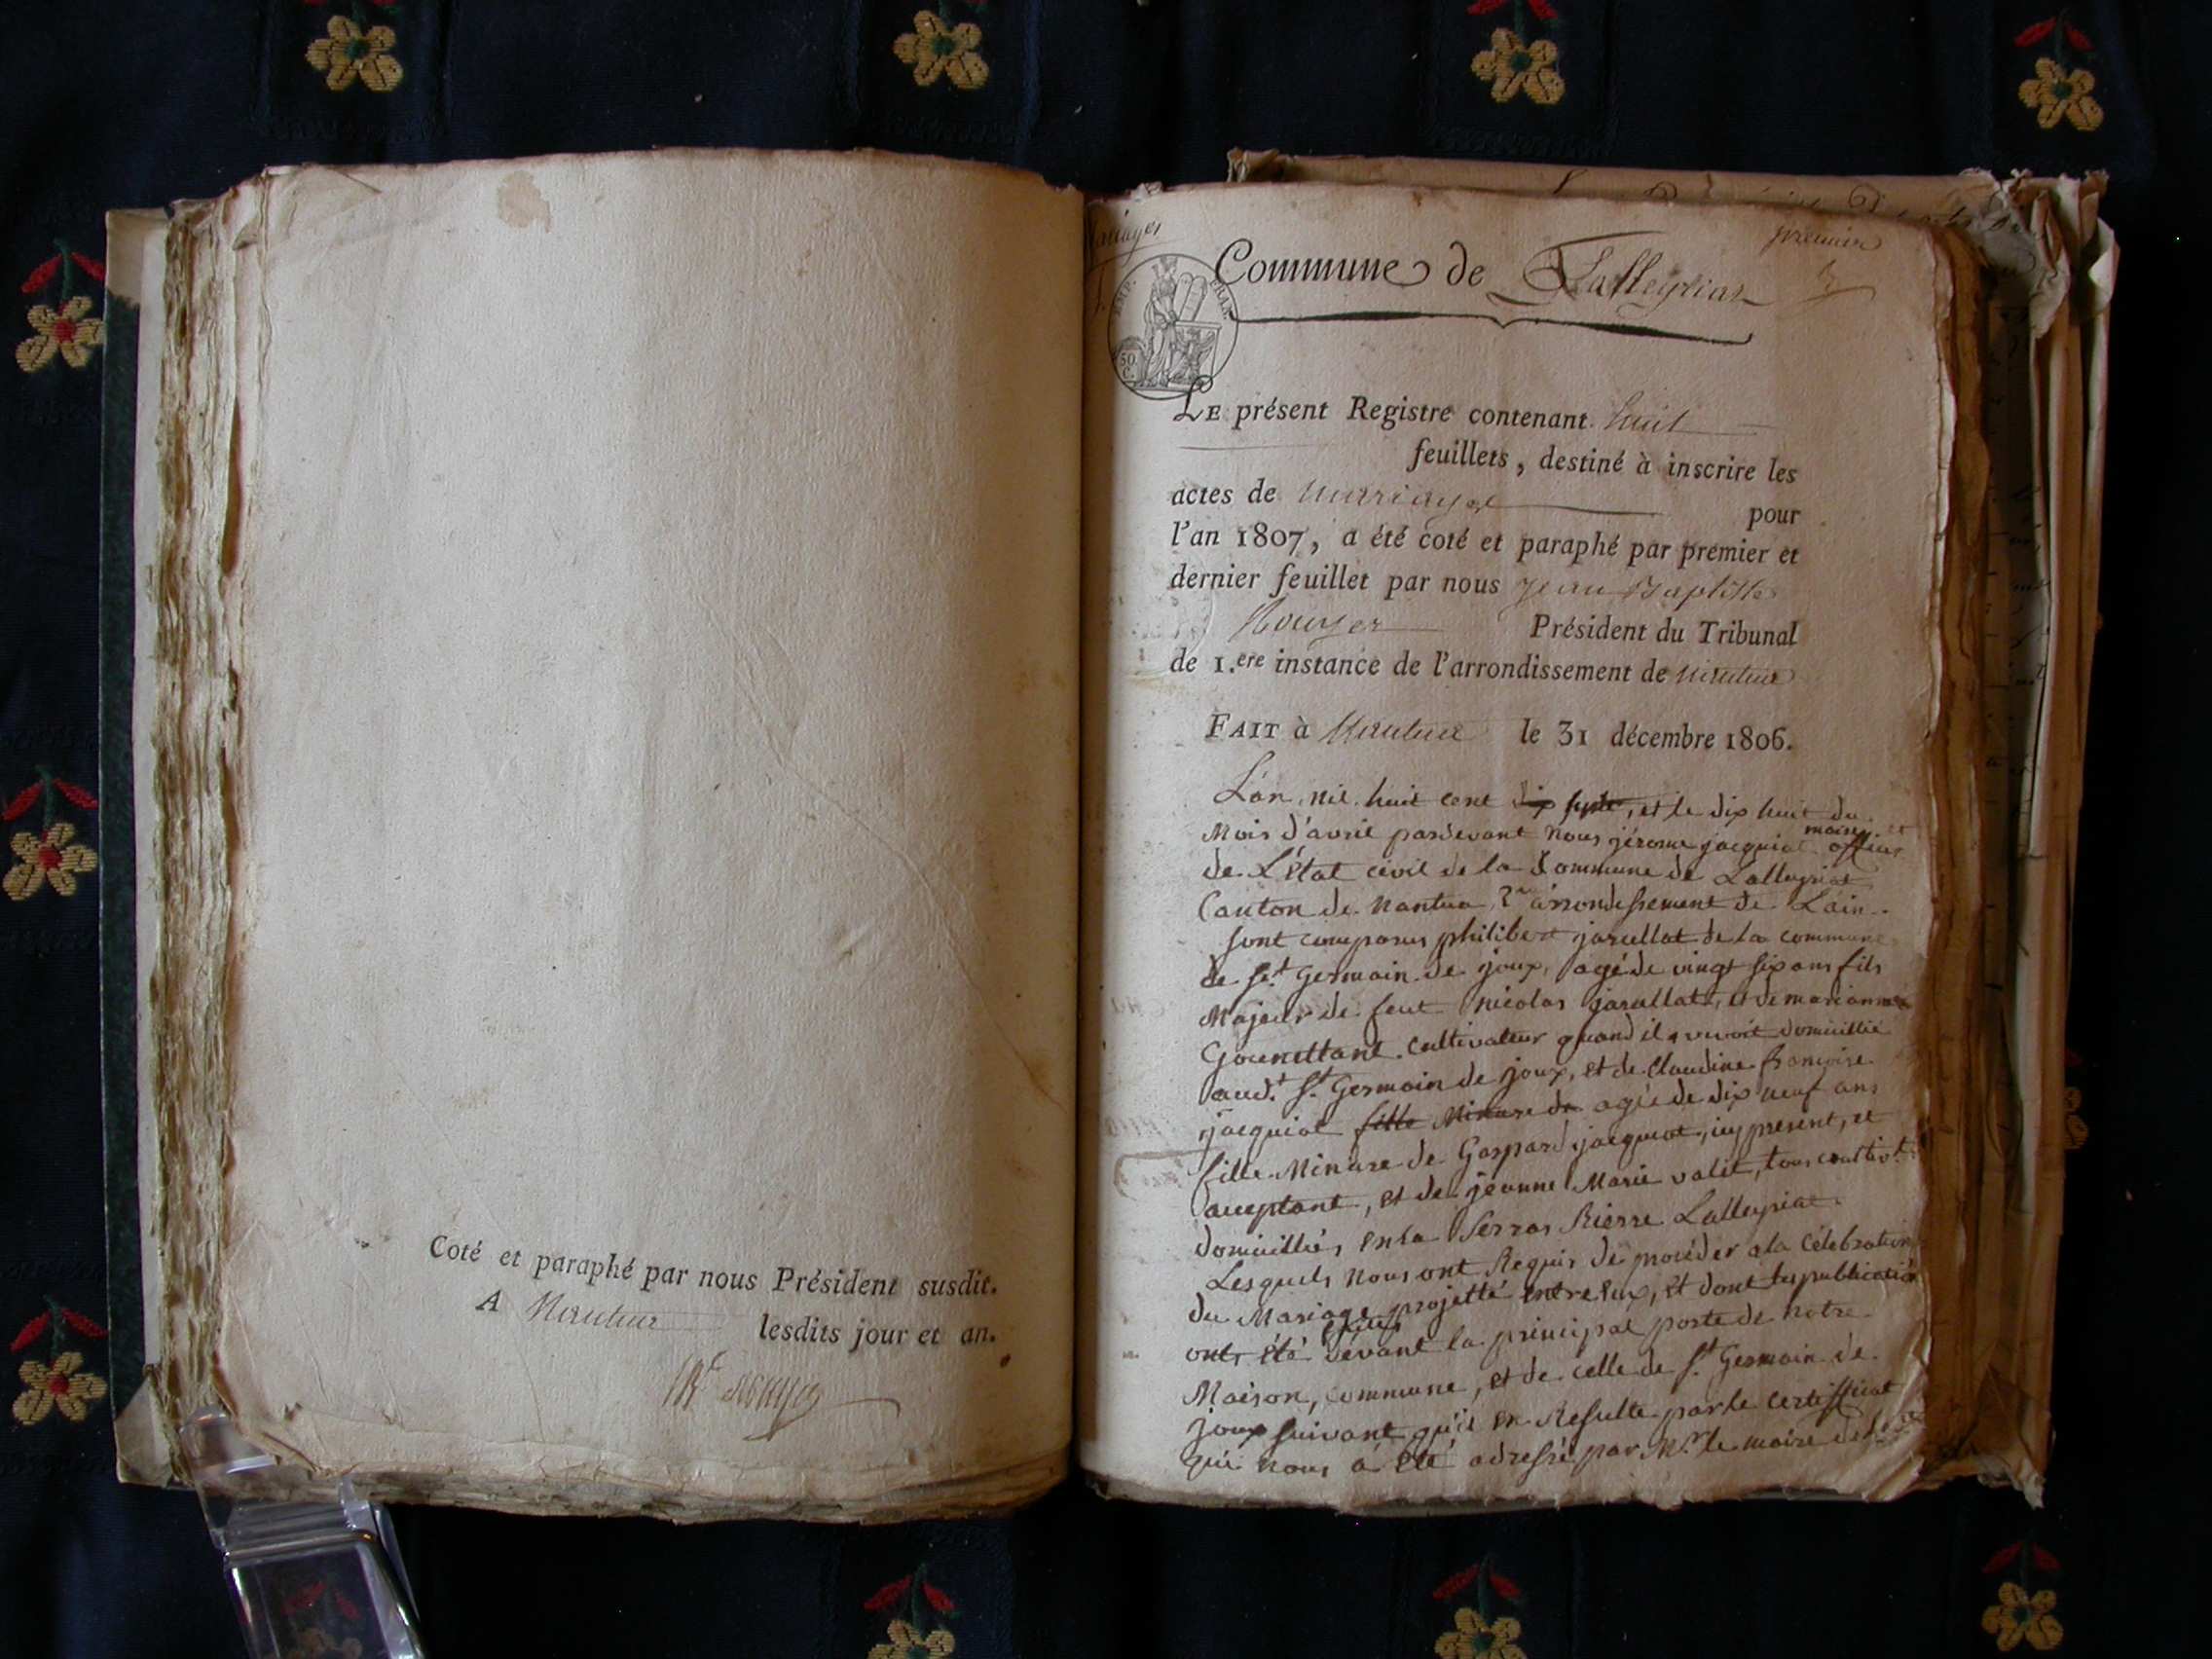 Coté et paraphé par nous Président susdit.
A Nantua lesdits jour et an.
mariages
premier
Commune de Lalleyriat
EMP. FRAN.
50 C.
LE présent Registre contenant huit
feuillets, destiné à inscrire les
actes de mariages pour
l'an 1807, a été coté et paraphé par premier et
dernier feuillet par nous Jean Baptiste
Rouyer Président du Tribunal
de 1.ere instance de l'arrondissement de Nantua
FAIT à Nantua le 31 décembre 1806.
L'an mil huit cent dix sept, et le dix huit du
Mois d'avril pardevant nous jérome jacquiot maire et officier
de L'état civil de la Commune de Lalleyriat
Canton de Nantua, arrondissement de L'ain.
sont comparus philibert jarullat de la commune
de St. Germain de joux, agé de vingt six ans fils
Majeur de feut nicolas jarullat, et de marianne
Gounettant. Cultivateur quand il vivoit domicillié
aud.t St. Germain de joux, et de Claudine françoise
jacquiot fille Minure de agée de dix neuf ans
fille Minure de Gaspard jacquiot, icy present, et
aceptant, et de jeanne Marie valit, tous coultivt.
domicilliés en la Serras Rierre Lalleyriat.
Lesquels nous ont Requis de procéder a la Célébration
du Mariage projetté entre eux, et dont les publication
onts été devant la principal porte de notre
Maison, commune, et de celle de St. Germain de
joux suivant qu'il en Resulte par le certifficat
qui nous a été adressé par Mr. le maire de